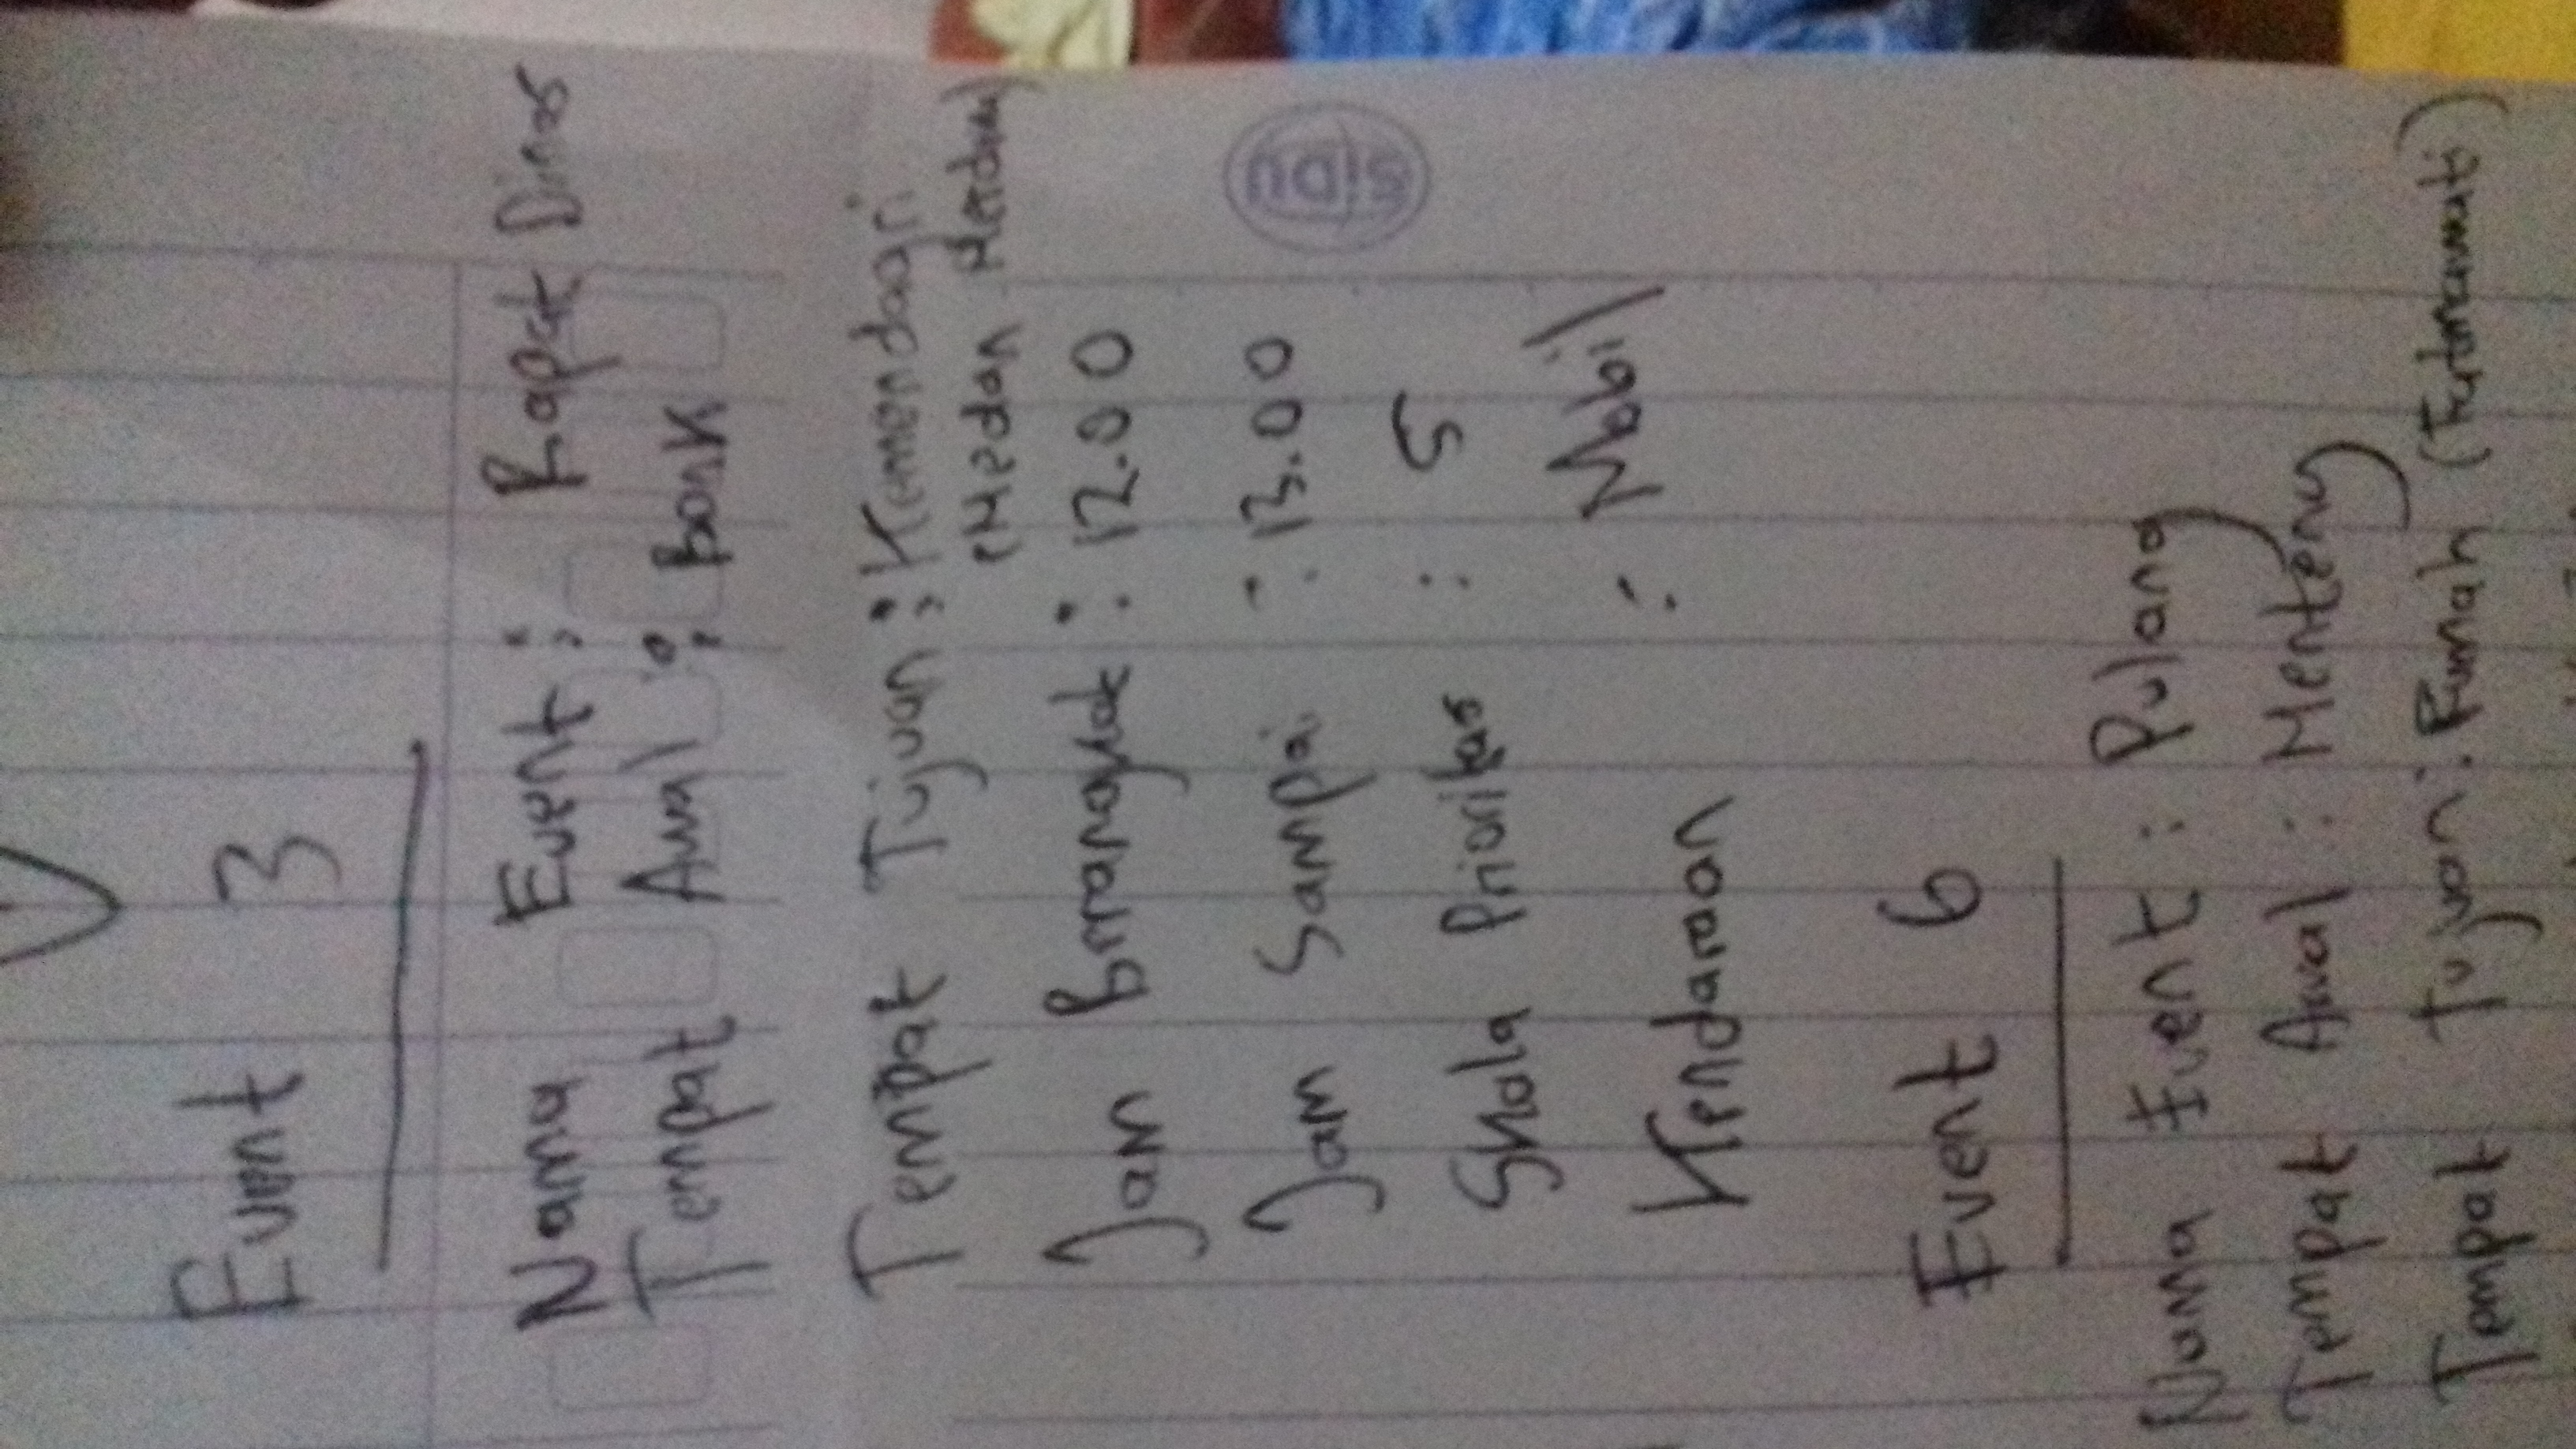 Event 3
Nama Event : Rapat Dinas
Tempat Awal : Bank
Tempat Tujuan : Kemendagri
(Medan Merdeka)
Jam Berangkat : 12.00
Jam Sampai : 13.00
Skala Prioritas : 5
Kendaraan : Mobil
SiDU
Event 6
Nama Event : Pulang
Tempat Awal : Menteng
Tempat Tujuan : Rumah (Fatmawati)